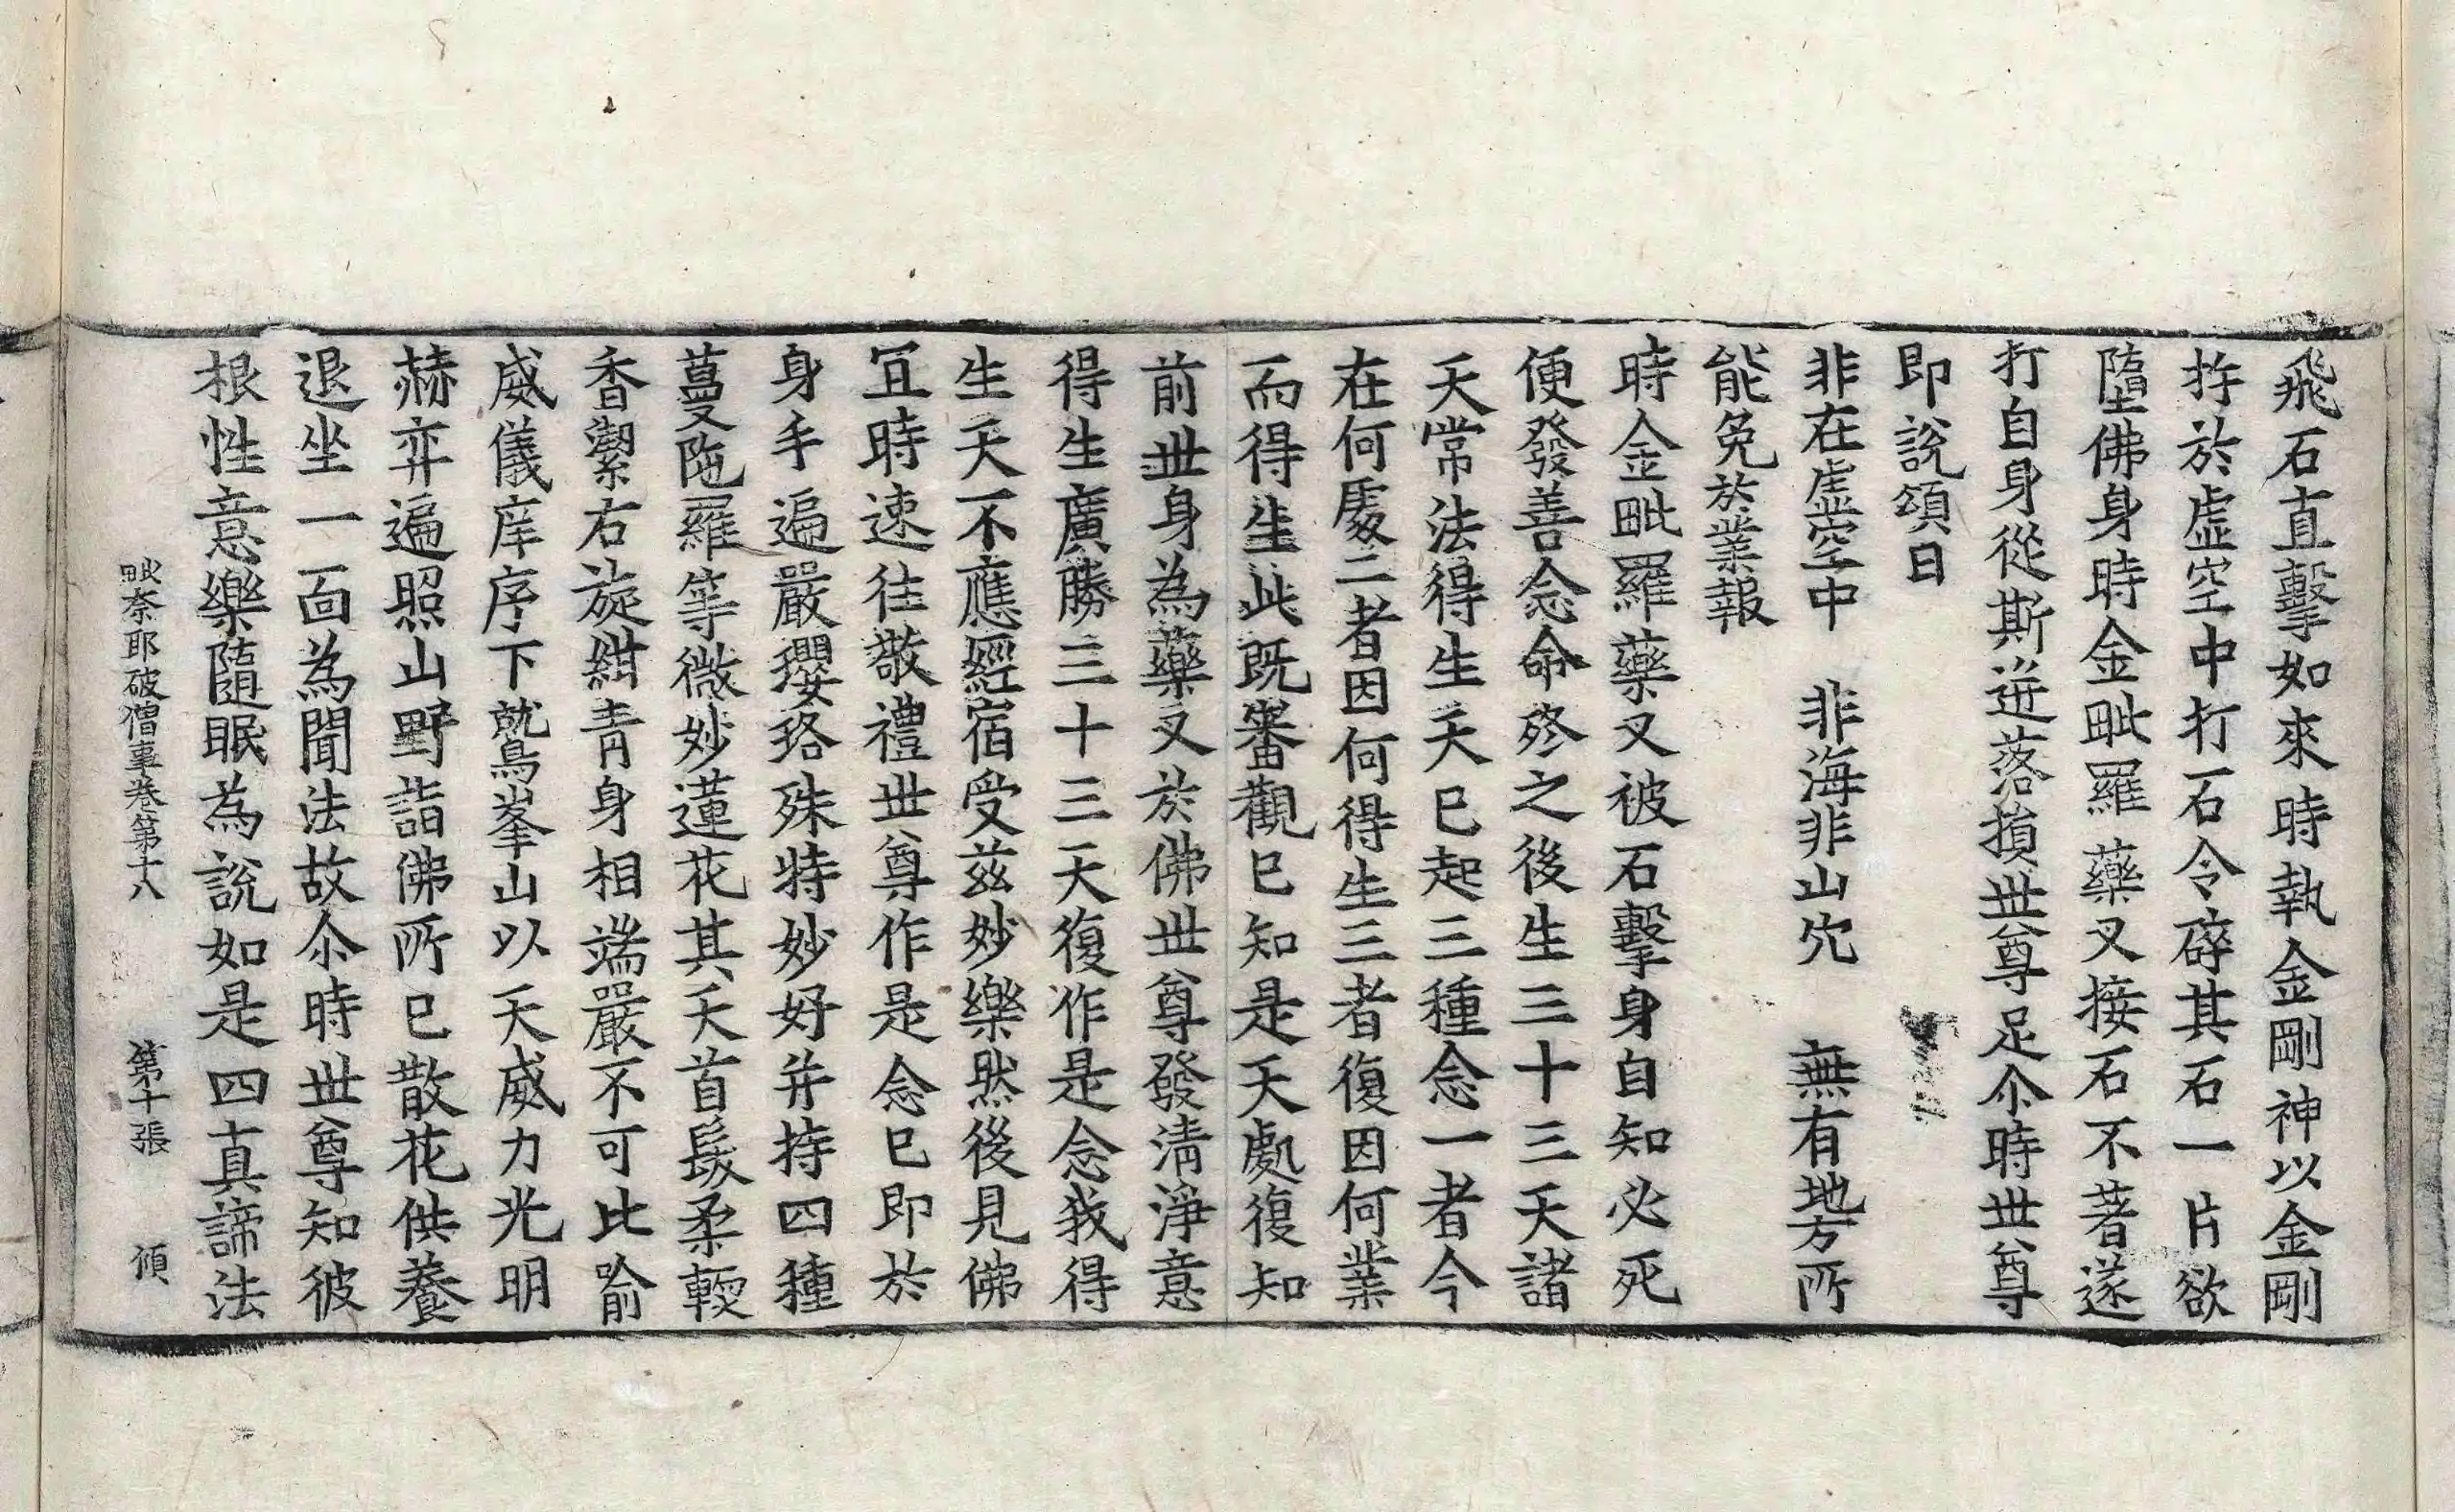 飛石直擊如來時執金剛神以金剛
杵於虛空中打石令碎其石一片欲
墮佛身時金毗羅藥叉接石不著遂
打自身從斯迸落損世尊足尒時世尊
即說頌曰
非在虛空中　非海非山穴　無有地方所
能免於業報
時金毗羅藥叉被石擊身自知必死
便發善念命終之後生三十三天諸
天常法得生天已起三種念一者今
在何處二者因何得生三者復因何業
而得生此既審觀已知是天處復知
前世身為藥叉於佛世尊發清淨意
得生廣勝三十三天復作是念我得
生天不應經宿受茲妙樂然後見佛
冝時速往敬禮世尊作是念已即於
身手遍嚴瓔珞殊特妙好并持四種
蔓陁羅等微妙蓮花其天首髮柔輭
香潔右旋紺青身相端嚴不可比喻
威儀庠序下就鷲峯山以天威力光明
赫弈遍照山野詣佛所已散花供養
退坐一面為聞法故尒時世尊知彼
根性意樂隨眠為說如是四真諦法
毗奈耶破僧事卷第十八　第十張　𠊓